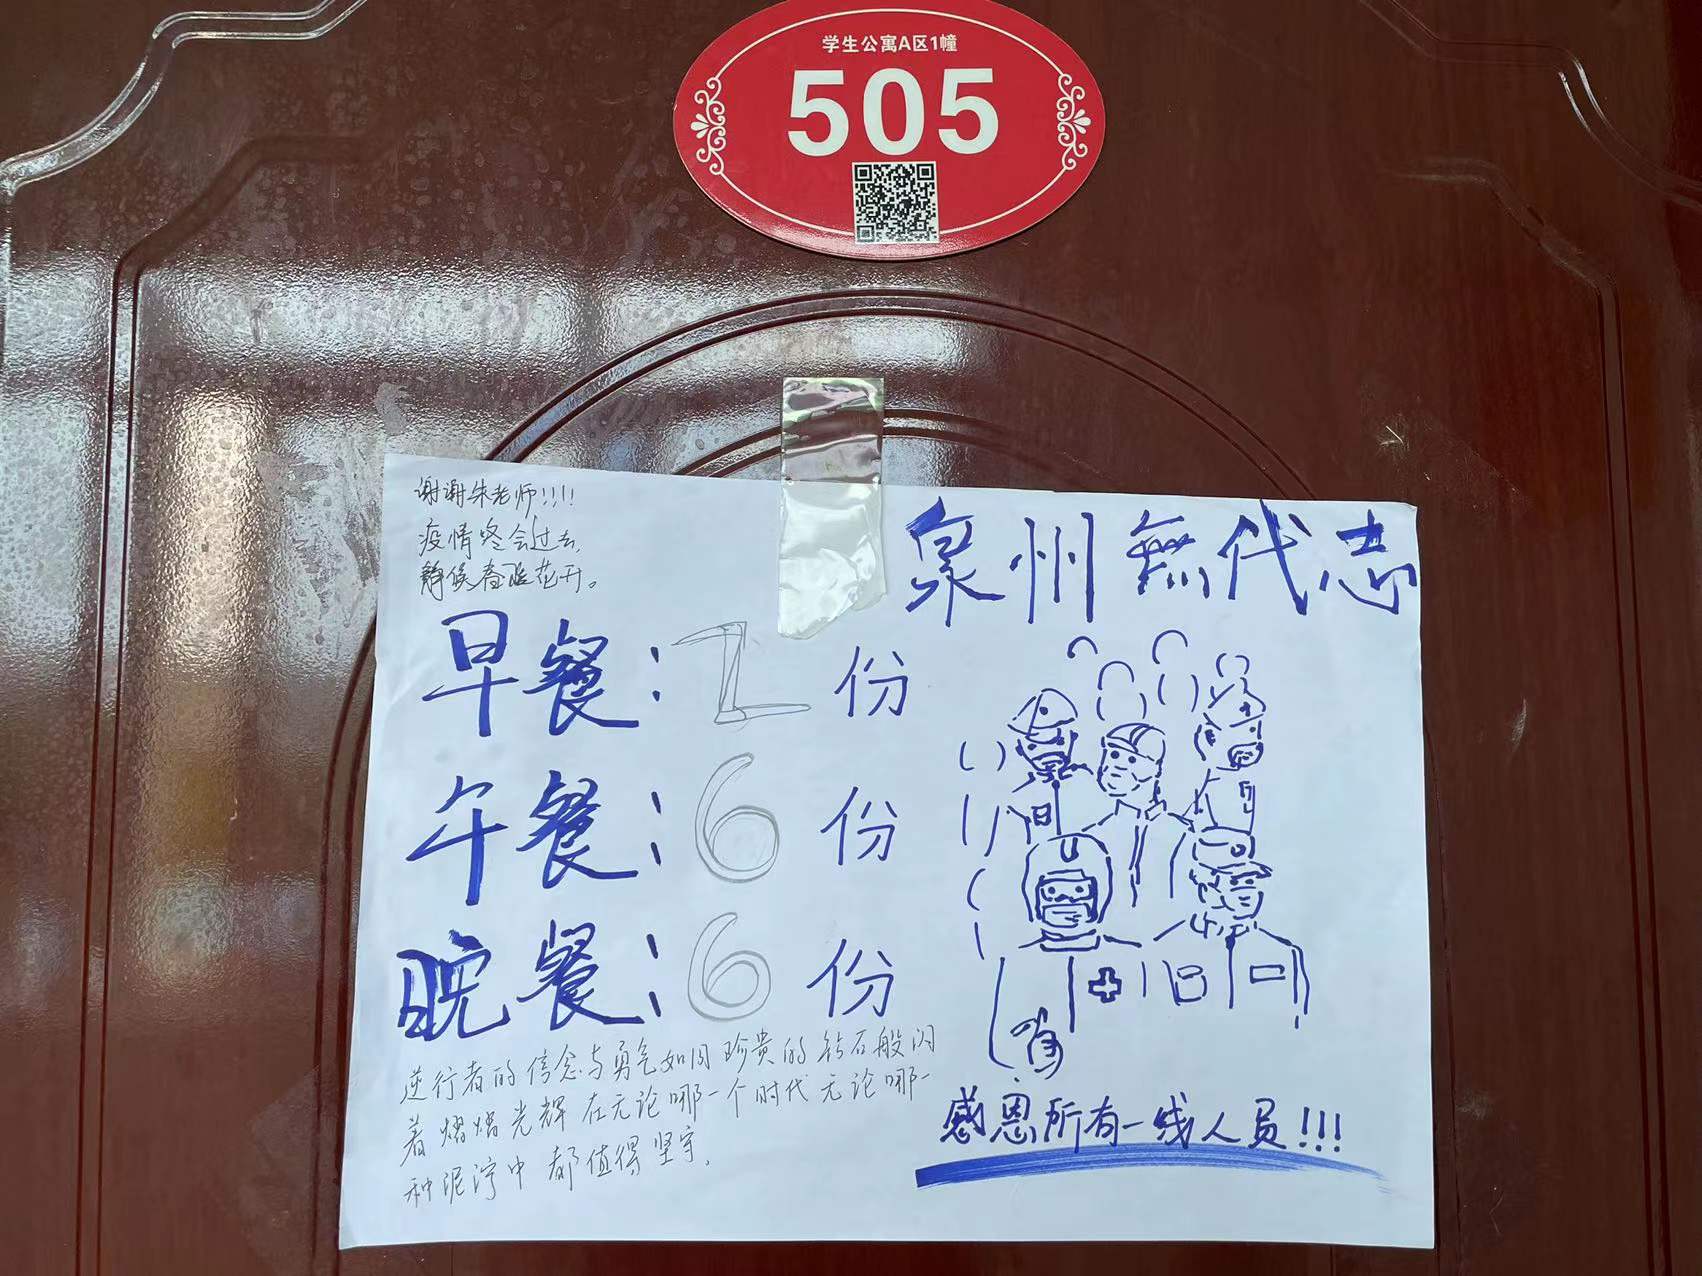 学生公寓A区1幢
505
谢谢朱老师!!!!
疫情终会过去,
静候春暖花开。
泉州無代志
早餐:2份
午餐:6份
晚餐:6份
逆行者的信念与勇气如同珍贵的钻石般闪
着熠熠光辉在无论哪一个时代无论哪一
种泥泞中都值得坚守.
感恩所有一线人员!!!